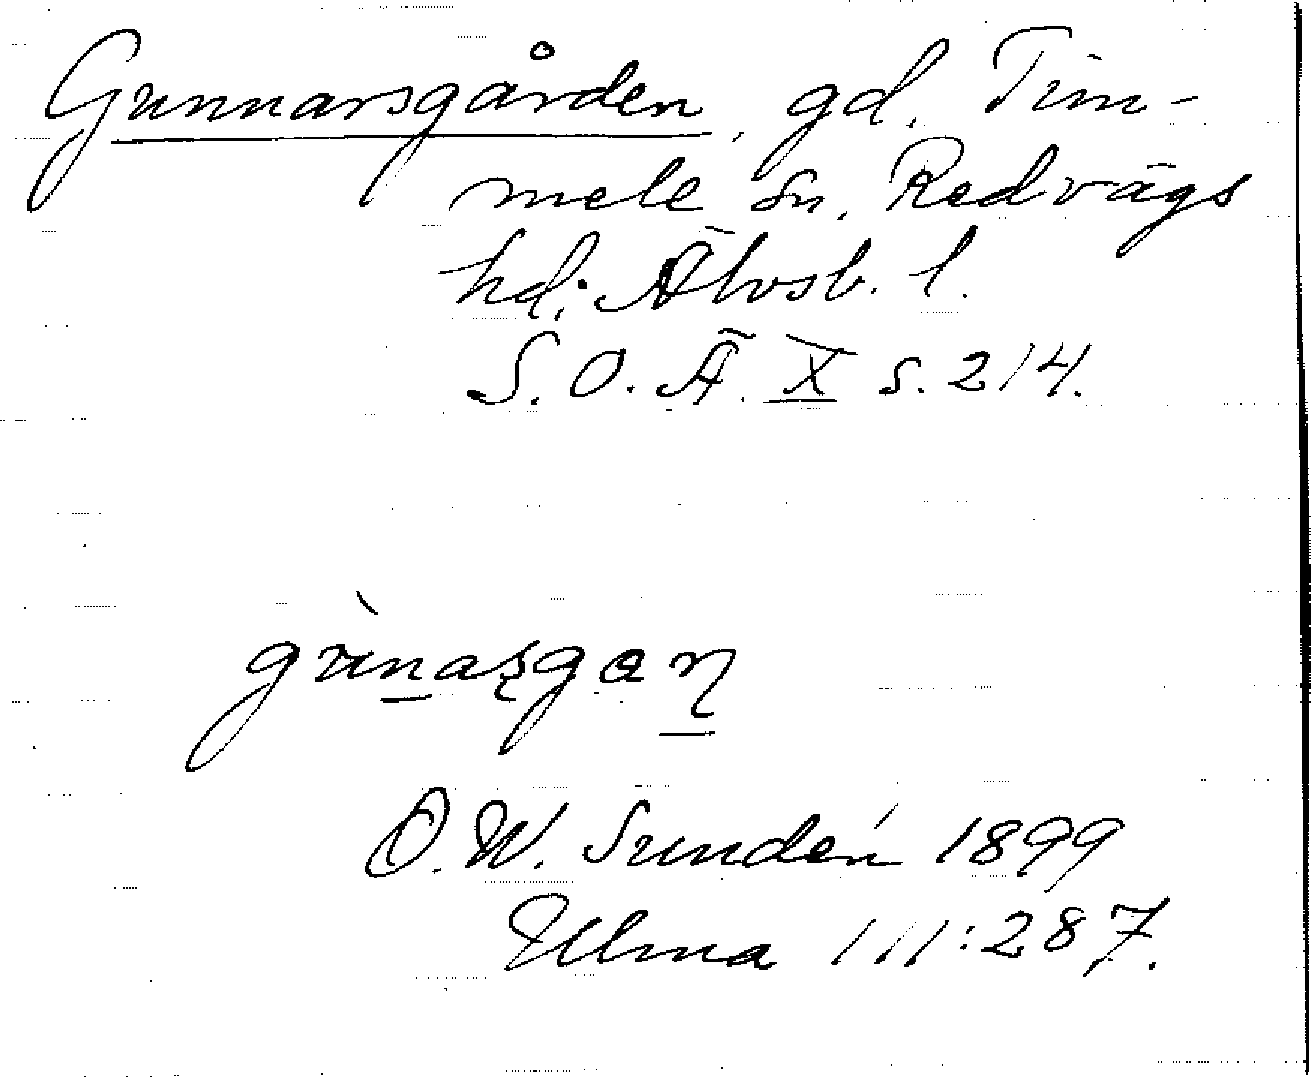 Gunnarsgården, gd, Tim-
mele sn, Redvägs
hd; Älvsb. l.
S. O. Ä. X s. 214.
gùn̲aʂgaɳ̲
O. W. Sundén 1899
Ulma 111:287.